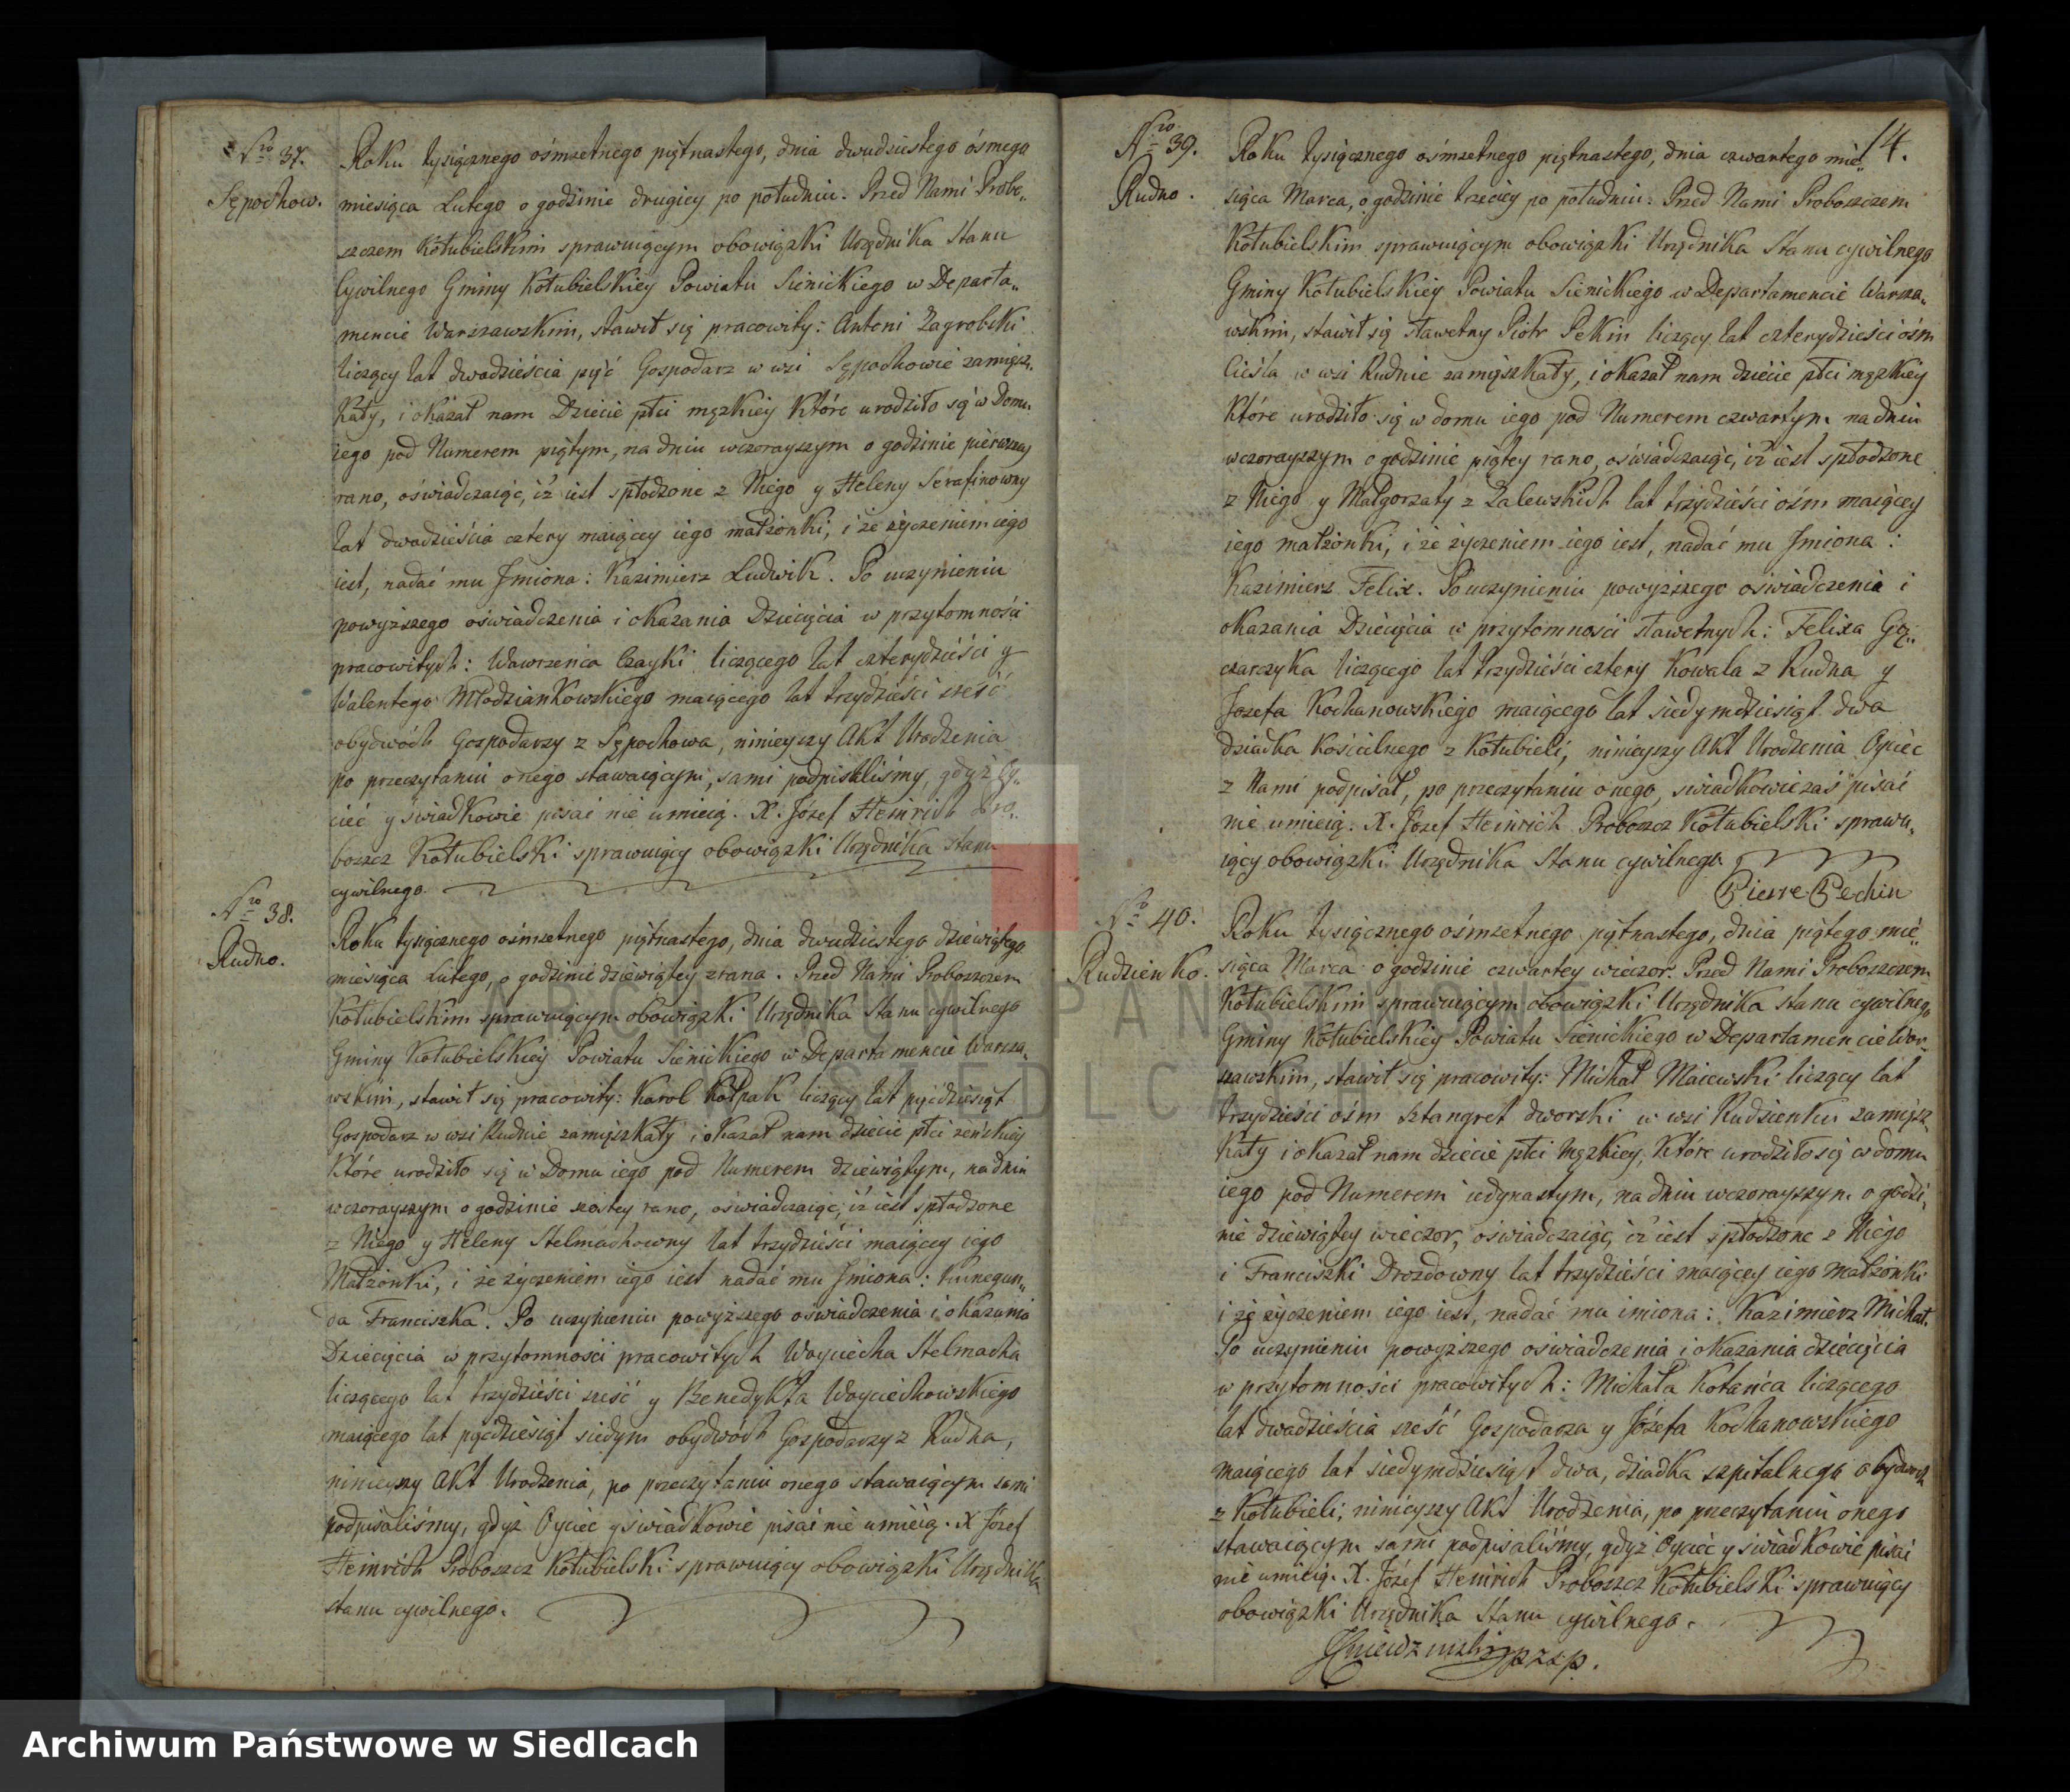 Nro 37.
Sępochow.
Roku tysiącznego ośmsetnego piętnastego, dnia dwudziestego ósmego
miesiąca Lutego o godzinie drugiey po południu. Przed Nami Probo„
szczem Kołubielskim sprawuiącym obowiązki Urzędnika Stanu
Cywilnego Gminy Kołubielskiey Powiatu Sienickiego w Departa„
mencie Warszawskim, stawił się pracowity: Antoni Zagrobski
liczący lat dwadzieścia pięć Gospodarz w wsi Sępochowie zamięsz„
kały, i okazał nam Dziecie płci męzkiey które urodziło się w Domu
iego pod Numerem piętym, na dniu wczorayszym o godzinie pierwszey
rano, oświadczaiąc, iż iest spłodzone z Niego y Heleny Serafinowny
lat dwadzieścia cztery maiącey iego małżonki, i że życzeniem iego
iest, nadać mu Jmiona: Kazimierz Ludwik. Po uczynieniu
powyższego oświadczenia i okazania Dziecięcia w przytomności
pracowitych: Wawrzenca Czayki liczącego lat czterydzieści y
Walentego Młodziankowskiego maiącego lat trzydzieści sześć
obydwóch Gospodarzy z Sępochowa, ninieyszy Akt Urodzenia
po przeczytaniu onego stawaiącym, sami podpisaliśmy, gdyż Oy„
ciec y świadkowie pisać nie umieią. X. Józef Heinrich Pro„
boszcz Kołubielski sprawuiący obowiązki Urzędnika stanu
cywilnego.
Nro 38.
Rudno.
Roku tysiącznego ośmsetnego piętnastego, dnia dwudziestego dziewiątego
miesiąca Lutego, o godzinie dziewiątey zrana. Przed Nami Proboszczem
Kołubielskim sprawuiącym obowiązki Urzędnika Stanu cywilnego
Gminy Kołubielskiey Powiatu Sienickiego w Departamencie Warsza„
wskim, stawił się pracowity: Karol Kołpak liczący lat pięćdziesiąt
Gospodarz w wsi Rudnie zamięszkały i okazał nam dziecie płci żeńskiey
które urodziło się w Domu iego pod Numerem dziewiątym, na dniu
wczorayszym o godzinie szostey rano, oświadczaiąc, iż iest spłodzone
z Niego y Heleny Stelmachowny lat trzydzieści maiącey iego
Małżonki, i że życzeniem iego iest nadać mu Jmiona: Kunegun„
da Franciszka. Po uczynieniu powyższego oświadczenia i okazania
Dziecięcia w przytomności pracowitych Woyciecha Stelmacha
liczącego lat trzydzieści sześć y Benedykta Woyciechowskiego
maiącego lat pięćdziesiąt siedym obydwóch Gospodarzy z Rudna,
ninieyszy Akt Urodzenia, po przeczytaniu onego stawaiącym sami
podpisaliśmy, gdyż Oyciec y świadkowie pisać nie umieią. X Józef
Heinrich Proboszcz Kołubielski sprawuiący obowiązki Urzędnika
stanu cywilnego.
14.
Nro 39.
Rudno.
Roku tysiącznego ośmsetnego piętnastego, dnia czwartego mie„
siąca Marca, o godzinie trzeciey po południu. Przed Nami Proboszczem
Kołubielskim sprawuiącym obowiązki Urzędnika Stanu cywilnego
Gminy Kołubielskiey Powiatu Sienickiego w Departamencie Warsza„
wskim, stawił się sławetny Piotr Pekin liczący lat czterydzieści ośm
Cieśla w wsi Rudnie zamięszkały, i okazał nam dziecie płci męzkiey
które urodziło się w domu iego pod Numerem czwartym na dniu
wczorayszym o godzinie piątey rano, oświadczaiąc, iż iest spłodzone
z Niego y Małgorzaty z Zalewskich lat trzydzieści ośm maiącey
iego małżonki, i że życzeniem iego iest, nadać mu Jmiona:
Kazimierz Felix. Po uczynieniu powyższego oświadczenia i
okazania Dziecięcia w przytomności sławetnych: Felixa Gę„
czarczyka liczącego lat trzydzieści cztery Kowala z Rudna y
Jozefa Kochanowskiego maiącego lat siedymdziesiąt dwa
dziadka Kościelnego z Kołubieli, ninieyszy Akt Urodzenia Oyciec
z Nami podpisał, po przeczytaniu onego, swiadkowie zaś pisać
nie umieią. X. Józef Heinrich Proboszcz Kołubielski sprawu„
iący obowiązki Urzędnika Stanu cywilnego
Pierre Pechin
Nro 40.
Rudzienko.
Roku tysiącznego ośmsetnego piętnastego, dnia piątego mie„
siąca Marca o godzinie czwartey wieczor. Przed Nami Proboszczem
Kołubielskim sprawuiącym obowiązki Urzędnika Stanu cywilnego
Gminy Kołubielskiey Powiatu Sienickiego w Departamencie War„
szawskim, stawił się pracowity: Michał Maiewski liczący lat
trzydzieści ośm Sztangret dworski w wsi Rudzienku zamięsz„
kały i okazał nam dziecie płci męzkiey, które urodziło się w domu
iego pod Numerem iedynastym, na dniu wczorayszym o godzi„
nie dziewiątey wieczor, oświadczaiąc, iż iest spłodzone z Niego
i Franciszki Drozdowny lat trzydzieści maiącey iego małżonki
i że życzeniem iego iest, nadać mu imiona: Kazimierz Michał.
Po uczynieniu powyższego oświadczenia i okazania dziecięcia
w przytomności pracowitych: Michała Kotańca liczącego
lat dwadzieścia sześć Gospodarza y Józefa Kochanowskiego
maiącego lat siedymdziesiąt dwa, dziadka szpitalnego obydwoch
z Kołubieli, ninieyszy Akt Urodzenia, po przeczytaniu onego
stawaiącym sami podpisaliśmy, gdyż Oyciec y świadkowie pisać
nie umieią. X. Józef Heinrich Proboszcz Kołubielski sprawuiący
obowiązki Urzędnika Stanu cywilnego.
ARCHIWUM PAŃSTWOWE
W SIEDLCACH
Archiwum Państwowe w Siedlcach